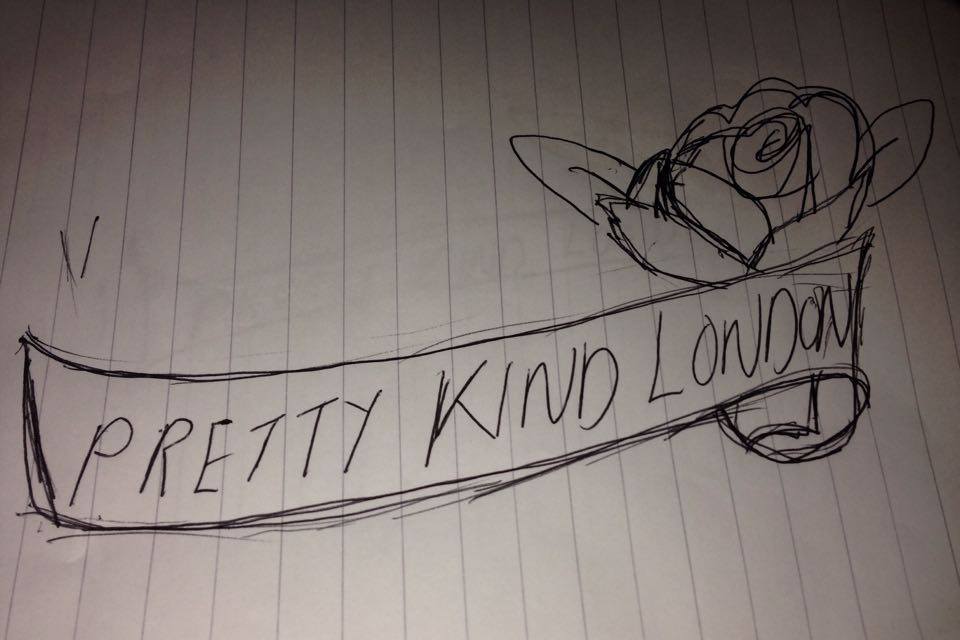 PRETTY KIND LONDON